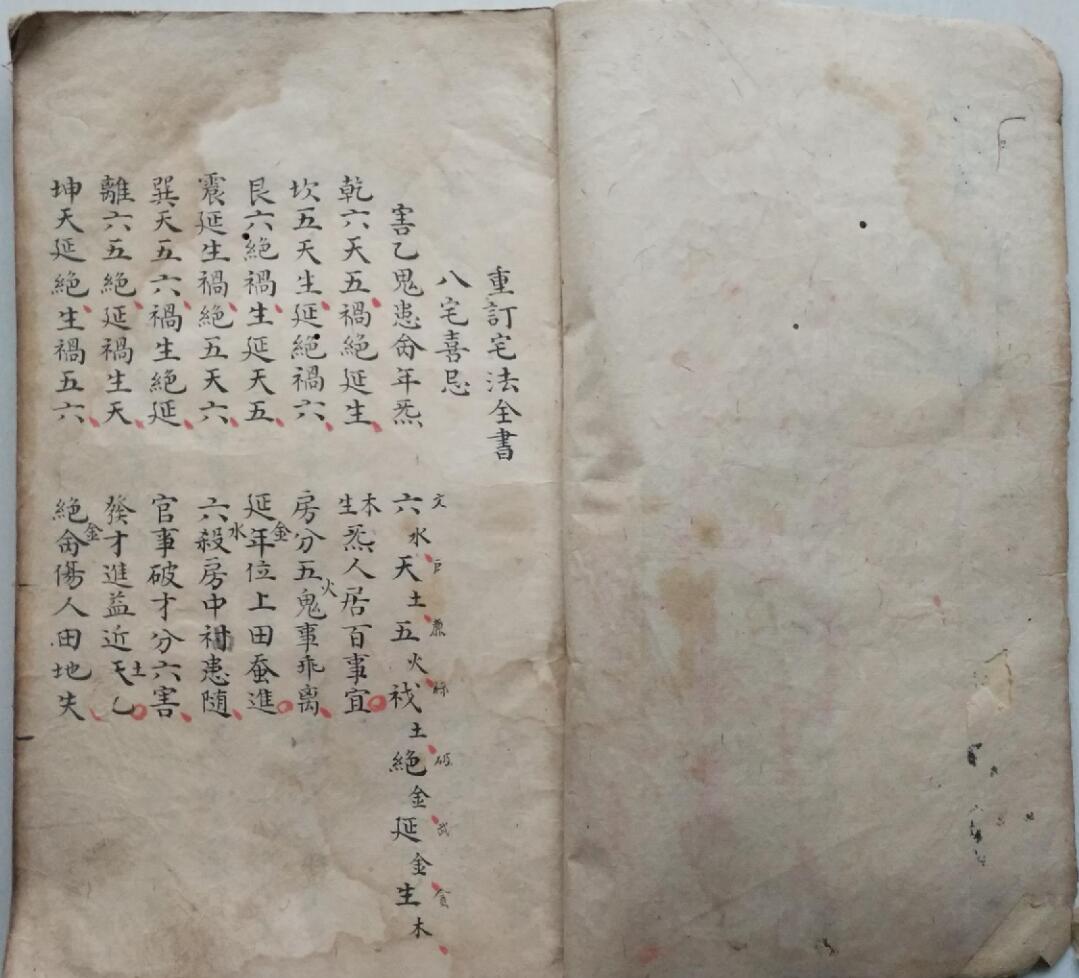 重訂宅法全書
八宅喜忌
害乙鬼患命年炁
乾六天五禍絶延生
坎五天生延絶禍六
艮六絶禍生延天五
震延生禍絶五天六
巽天五六禍生絶延
離六五絶延禍生天
坤天延絶生禍五六
文巨廉祿破武貪
六水天土五火禍土絶金延金生木
木
生炁人居百事宜
火
房分五鬼事乖離
金
延年位上田蚕進
水
六殺房中禍患隨
官事破才分六害
土
發才進益近天乙
金
絶命傷人田地失